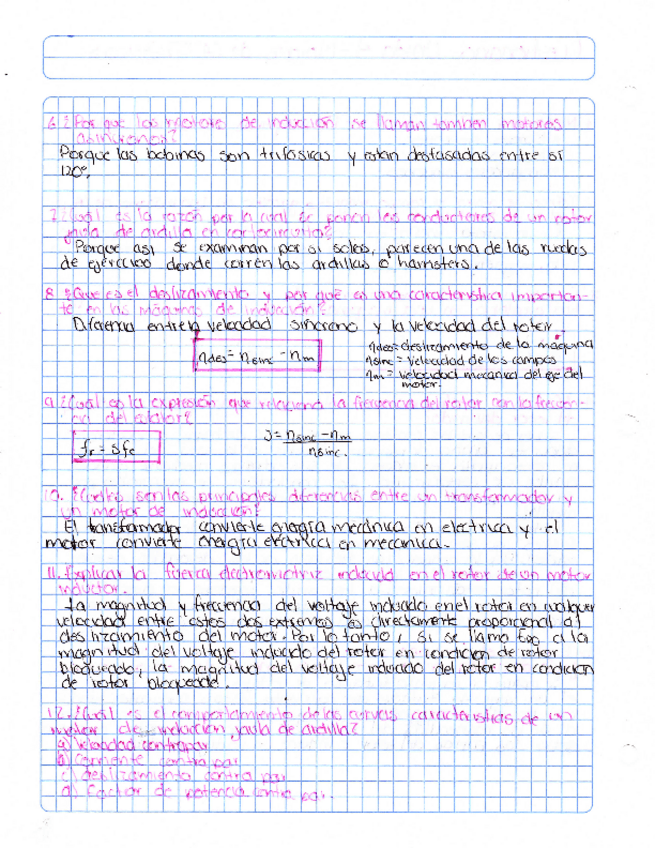 6. ¿Por qué los motore de inducción se llaman tambien motores
asincronos?
Porque las bobinas son trifásicas y estan desfasadas entre si
120°.
7. ¿Cuál es la razón por la cual se ponen los conductores de un rotor
jaula de ardilla en
Porque asi se examinan por si solos, parecen una de las ruedas
de ejercicio donde corren las ardillas o hamsters.
8. ¿Que es el deslizamiento y por qué es una caracteristica importan-
te en las máquinas de inducción?
Diferencia entre la velocidad sincrono y la velocidad del rotor.
ηdes = ηsinc - ηm
ηdes = deslizamiento de la máquina
ηsinc = Velocidad de los campos
ηm = Velocidad mecanica del eje del
motor.
9. ¿Cuál es la expresión que relaciona la frecuencia del rotor con la frecuen-
cia del estator?
fr = sfe
S = ηsinc - ηm
ηsinc.
10. ¿Cuáles son las principales diferencias entre un transformador y
un motor de inducción?
El transformador convierte energía mecánica en electrica y el
motor convierte energía eléctrica en mecanica.
11. Explicar la fuerza electromotriz inducida en el rotor de un motor
inductor.
La magnitud y frecuencia del voltaje inducido en el rotor en cualquier
velocidad entre estos dos extremos es directamente proporcional al
deslizamiento del motor. Por lo tanto, si se llama a la
magnitud del voltaje inducido del rotor en condicion de rotor
bloqueado, la magnitud del voltaje inducido del rotor en condicion
de rotor bloqueado.
12. ¿Cuál es el comportamiento de las curvas caracteristicas de un
motor de inducción, jaula de ardilla?
a) Velocidad contra par
b) Corriente contra par
c) deslizamiento contra par
d) Factor de potencia contra par.